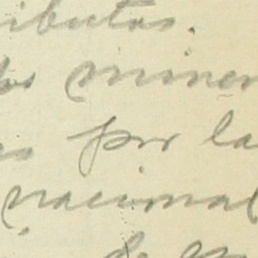 ibutos.
os miner
s por la
nacional